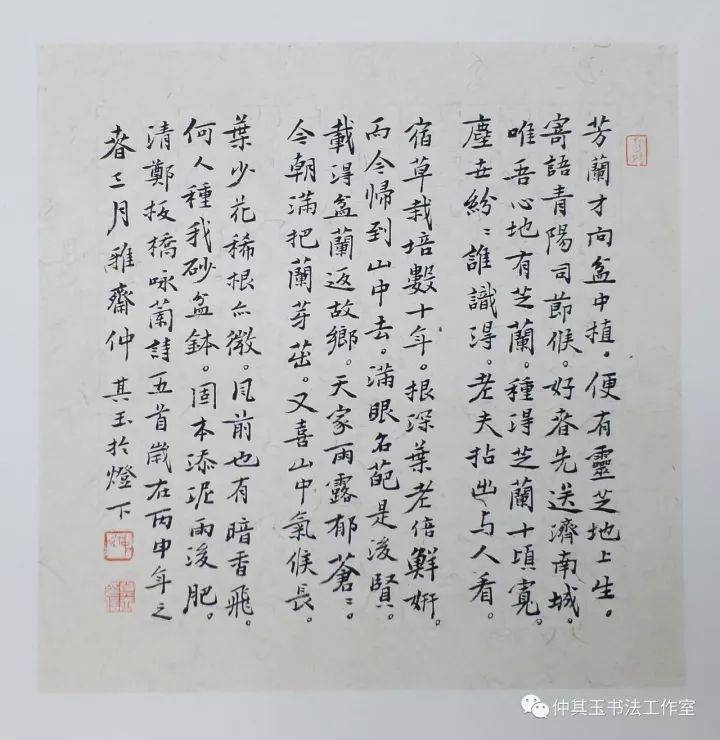 芳蘭才向盆中植。便有靈芝地上生。
寄語青陽司節候。好春先送濟南城。
唯吾心地有芝蘭。種得芝蘭十頃寬。
塵世紛〻誰識得。老夫拈出与人看。
宿草栽培數十年。根深葉老倍鮮妍。
而今歸到山中去。滿眼名葩是後賢。
載得盆蘭返故鄉。天家雨露郁蒼〻。
今朝滿把蘭芽茁。又喜山中氣候長。
葉少花稀根亦微。風前也有暗香飛。
何人種我砂盆鉢。固本添泥雨後肥。
清鄭板橋咏蘭詩五首歲在丙申年之
春三月雅齋仲其玉於燈下
仲其玉书法工作室